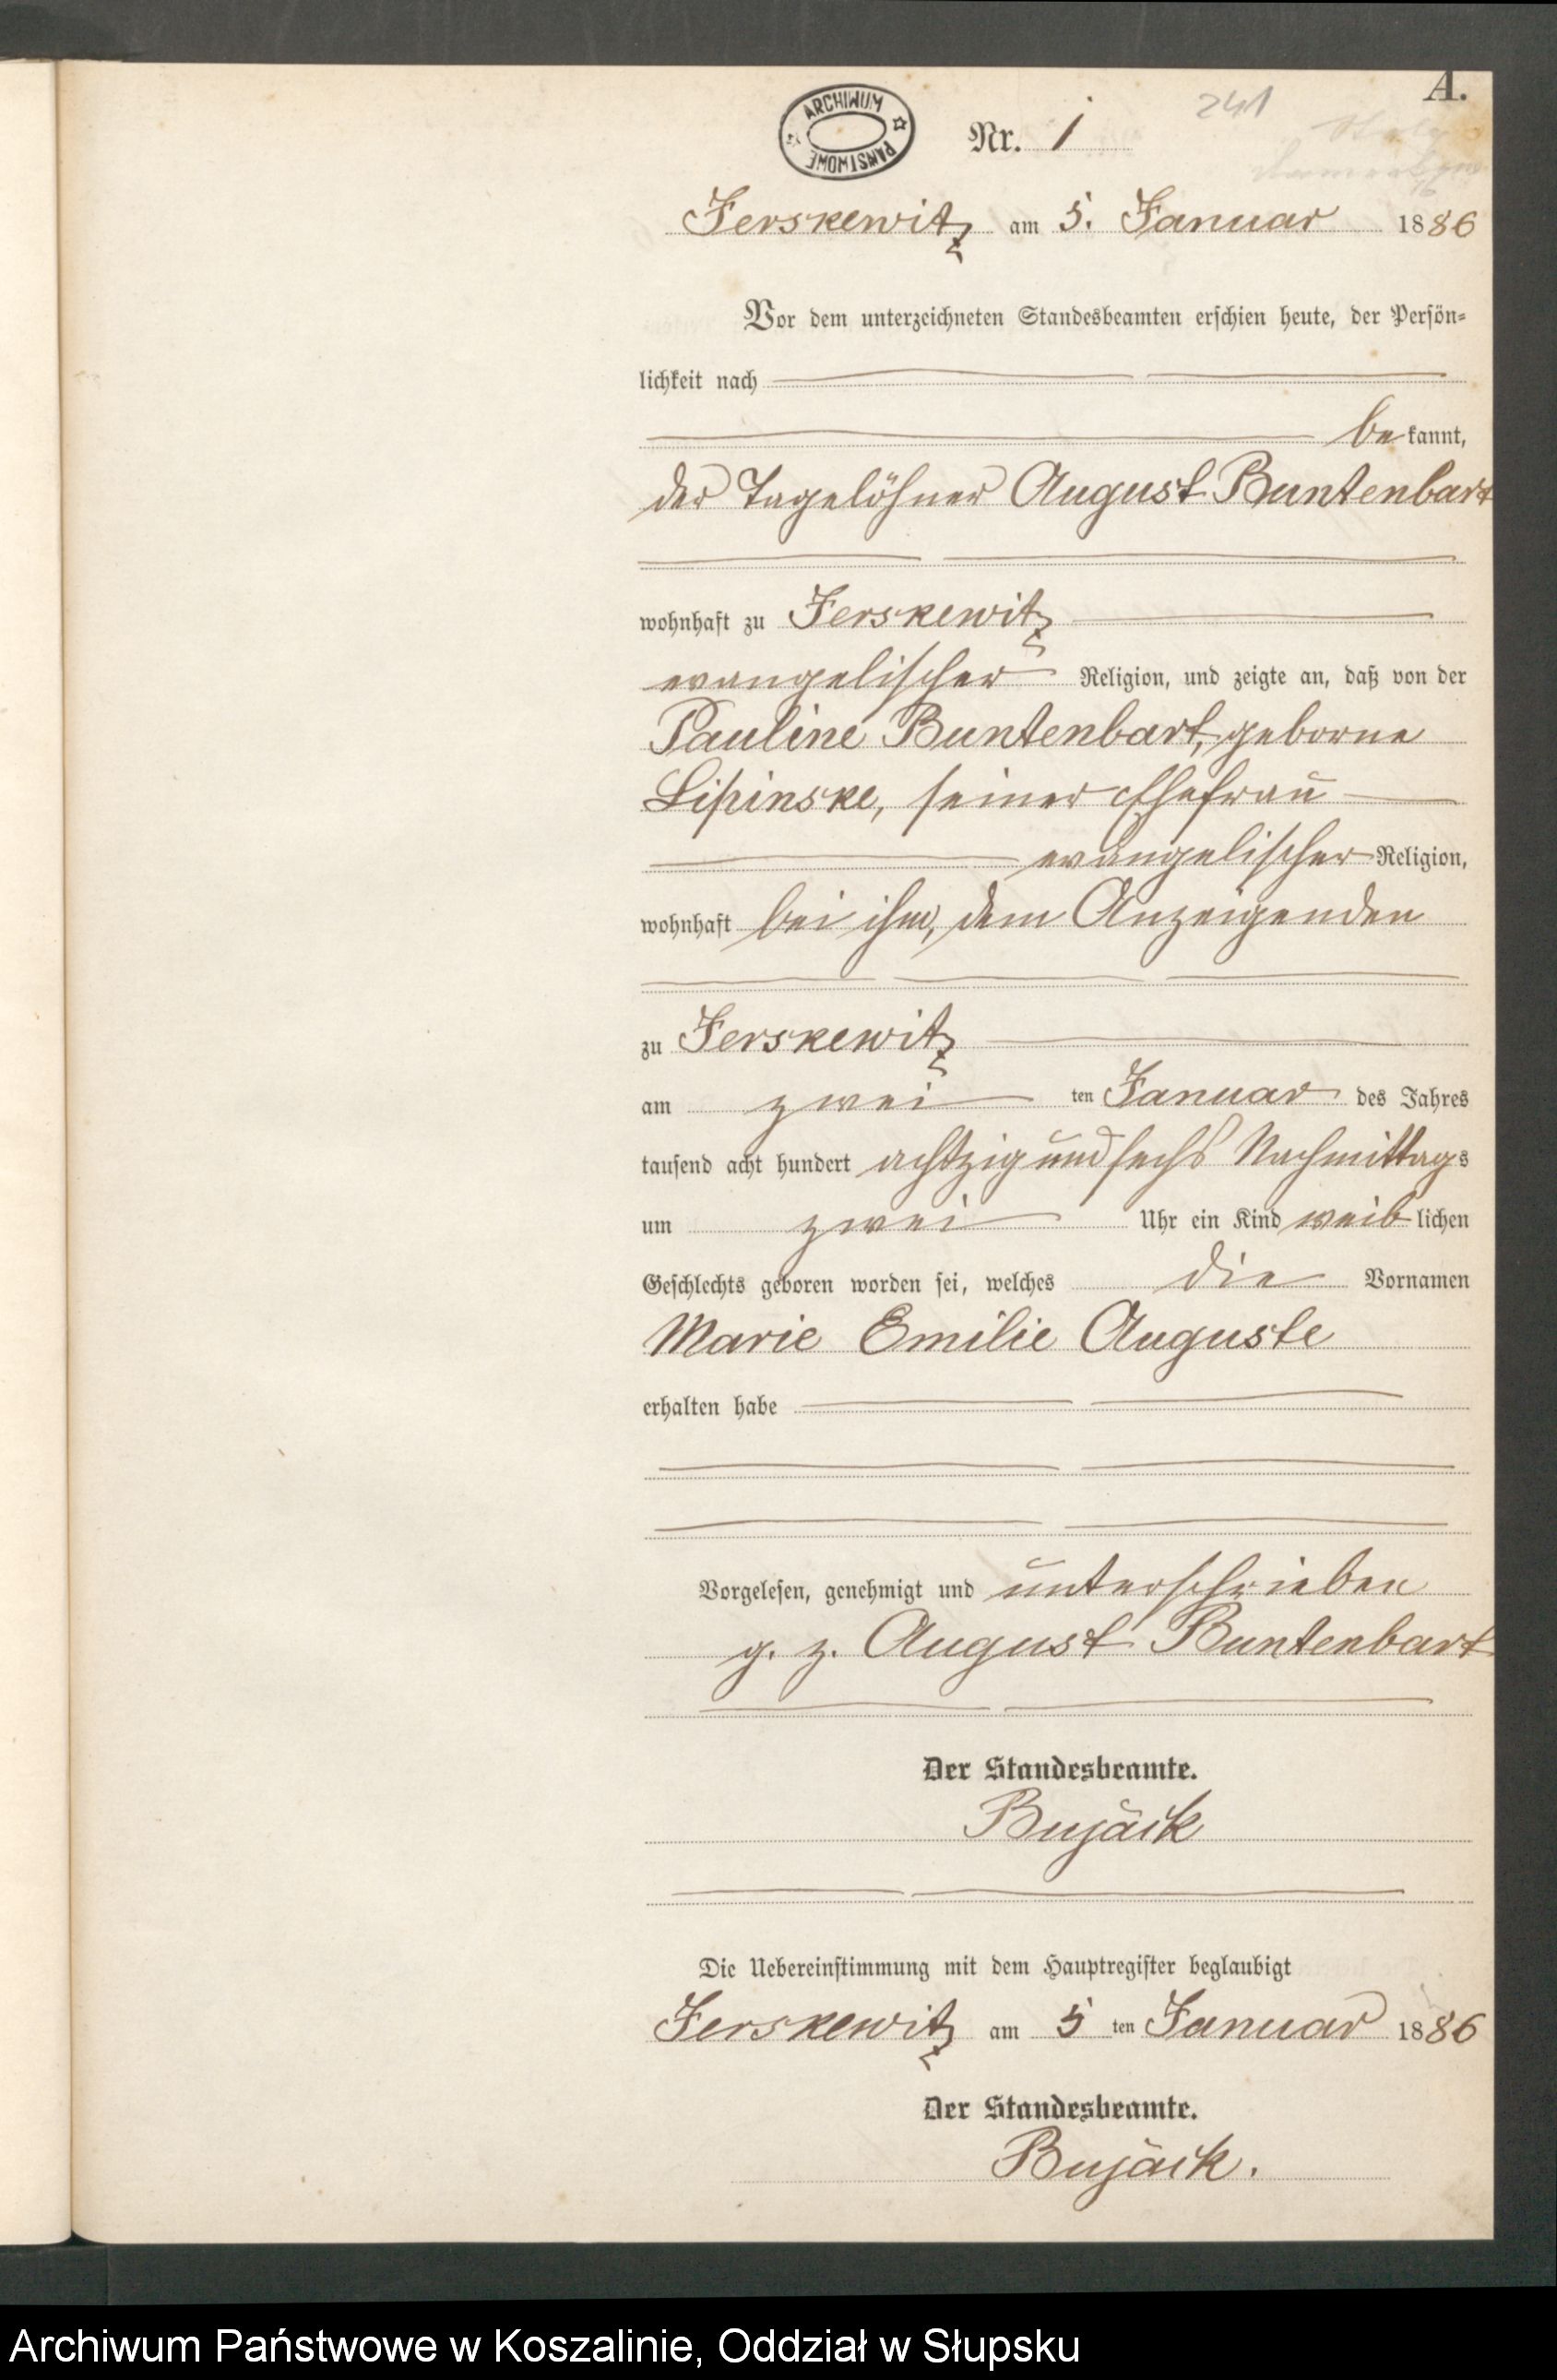 A.
ARCHIWUM PAŃSTWOWE
Nr. 1
241
Jerskewitz am 5. Januar 1886
Vor dem unterzeichneten Standesbeamten erschien heute, der Persön-
lichkeit nach
be kannt,
der Tagelöhner August Buntenbart
wohnhaft zu Jerskewitz
evangelischer Religion, und zeigte an, daß von der
Pauline Buntenbart, geborne
Lipinske, seiner Ehefrau
evangelischer Religion,
wohnhaft bei ihm, dem Anzeigenden
zu Jerskewitz
am zwei ten Januar des Jahres
tausend acht hundert achtzig und sechs Nachmittags
um zwei Uhr ein Kind weib lichen
Geschlechts geboren worden sei, welches die Vornamen
Marie Emilie Auguste
erhalten habe
Vorgelesen, genehmigt und unterschrieben
g. z. August Buntenbart
Der Standesbeamte.
Bujäck
Die Uebereinstimmung mit dem Hauptregister beglaubigt
Jerskewitz am 5 ten Januar 1886
Der Standesbeamte.
Bujäck.
Archiwum Państwowe w Koszalinie, Oddział w Słupsku